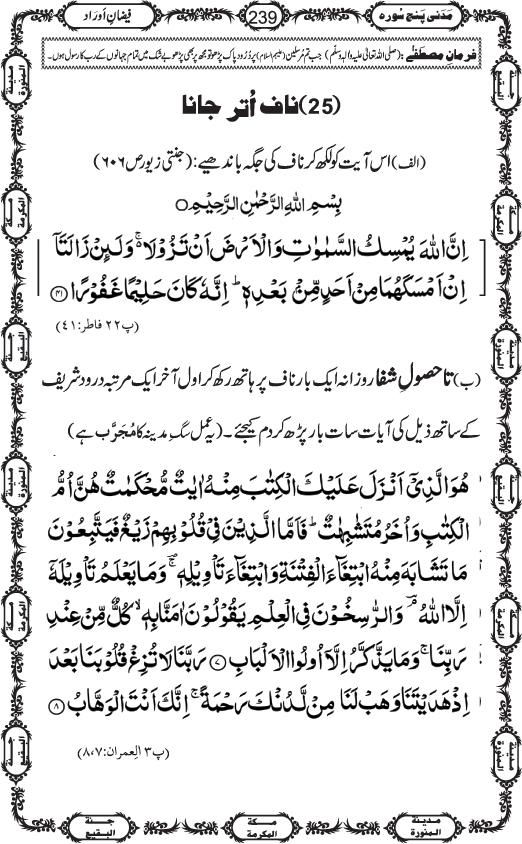 مَدَنی پنج سورہ
239
فیضانِ اَوراد
فرمانِ مصطفٰے : (صلی اللہ تعالیٰ علیہ والہٖ وسلّم) جب تم مُرسلین (علیہم السلام) پر دُرُود پاک پڑھو تو مجھ پر بھی پڑھو بے شک میں تمام جہانوں کے رب کا رسول ہوں۔
(25) ناف اُتر جانا
(الف) اس آیت کو لکھ کر ناف کی جگہ باندھیے: (جنتی زیور ص ۶۰۶)
بِسْمِ اللّٰهِ الرَّحْمٰنِ الرَّحِیْمِ
اِنَّ اللّٰهَ یُمْسِكُ السَّمٰوٰتِ وَالْاَرْضَ اَنْ تَزُوْلَا ۚ۬ وَلَىِٕنْ زَالَتَاۤ
اِنْ اَمْسَكَهُمَا مِنْ اَحَدٍ مِّنْۢ بَعْدِهٖ ؕ اِنَّهٗ كَانَ حَلِیْمًا غَفُوْرًا ﴿۴۱﴾
(پ۲۲ فاطر: ۴۱)
(ب) تا حصولِ شفا روزانہ ایک بار ناف پر ہاتھ رکھ کر اول آخر ایک مرتبہ درود شریف
کے ساتھ ذیل کی آیات سات بار پڑھ کر دم کیجئے۔ (یہ عمل سگِ مدینہ کا مُجَرَّب ہے)
هُوَ الَّذِیْۤ اَنْزَلَ عَلَیْكَ الْكِتٰبَ مِنْهُ اٰیٰتٌ مُّحْكَمٰتٌ هُنَّ اُمُّ
الْكِتٰبِ وَ اُخَرُ مُتَشٰبِهٰتٌ ؕ فَاَمَّا الَّذِیْنَ فِیْ قُلُوْبِهِمْ زَیْغٌ فَیَتَّبِعُوْنَ
مَا تَشَابَهَ مِنْهُ ابْتِغَآءَ الْفِتْنَةِ وَ ابْتِغَآءَ تَاْوِیْلِهٖ ۚ۬ وَمَا یَعْلَمُ تَاْوِیْلَهٗۤ
اِلَّا اللّٰهُ ۘؔ وَالرّٰسِخُوْنَ فِی الْعِلْمِ یَقُوْلُوْنَ اٰمَنَّا بِهٖ ۙ كُلٌّ مِّنْ عِنْدِ
رَبِّنَا ۚ وَمَا یَذَّكَّرُ اِلَّاۤ اُولُوا الْاَلْبَابِ ﴿۷﴾ رَبَّنَا لَا تُزِغْ قُلُوْبَنَا بَعْدَ
اِذْ هَدَیْتَنَا وَهَبْ لَنَا مِنْ لَّدُنْكَ رَحْمَةً ۚ اِنَّكَ اَنْتَ الْوَهَّابُ ﴿۸﴾
(پ۳ الِ عمران: ۸،۷)
مدینۃ المنورۃ
مکۃ المکرمۃ
جنۃ البقیع
مدینۃ المنورۃ
مکۃ المکرمۃ
جنۃ البقیع
جنۃ البقیع
مکۃ المکرمۃ
مدینۃ المنورۃ
جنۃ البقیع
مکۃ المکرمۃ
مدینۃ المنورۃ
جنۃ البقیع
مکۃ المکرمۃ
مدینۃ المنورۃ